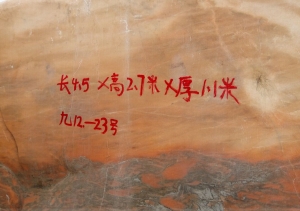 长4.5×高2.7米×厚1.1米
九12.—23号